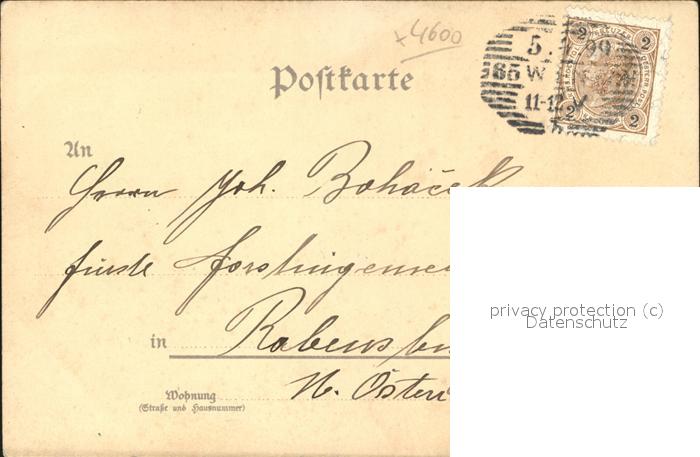 +4600
5. . 99
65 WIEN
11-12 V
2 2
2 2
Postkarte
An
Herrn Joh. Boháček
fürstl. Forstingenieur
in Rabensbu
N. Österr
Wohnung
(Straße und Hausnummer)
privacy protection (c)
Datenschutz